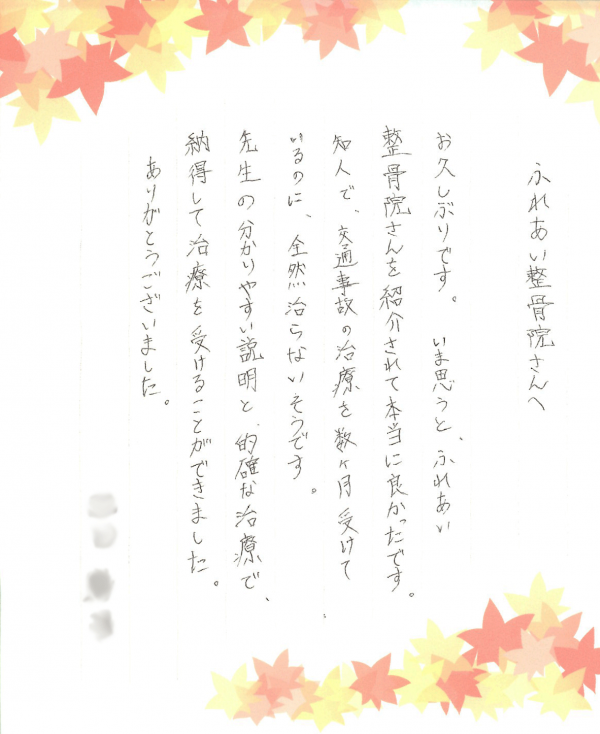 ふれあい整骨院さんへ
お久しぶりです。 いま思うと、ふれあい
整骨院さんを紹介されて本当に良かったです。
知人で、交通事故の治療を数ヶ月受けて
いるのに、全然治らないそうです。
先生の分かりやすい説明と、的確な治療で、
納得して治療を受けることができました。
ありがとうございました。